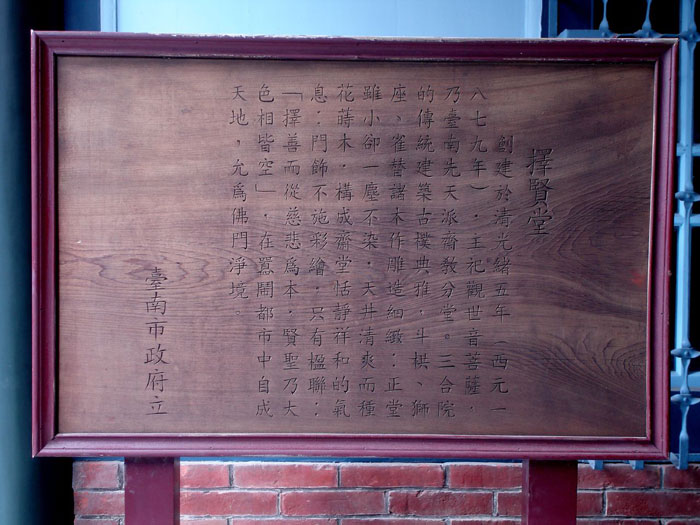 擇賢堂
創建於清光緒五年（西元一
八七九年），主祀觀世音菩薩，
乃臺南先天派齋教分堂。三合院
的傳統建築古樸典雅，斗栱、獅
座、雀替諸木作雕造細緻；正堂
雖小卻一塵不染，天井清爽而種
花蒔木，構成齋堂恬靜祥和的氣
息；門飾不施彩繪，只有楹聯：
「擇善而從慈悲為本，賢聖乃大
色相皆空」，在囂鬧都市中自成
天地，允為佛門淨境。
臺南市政府立